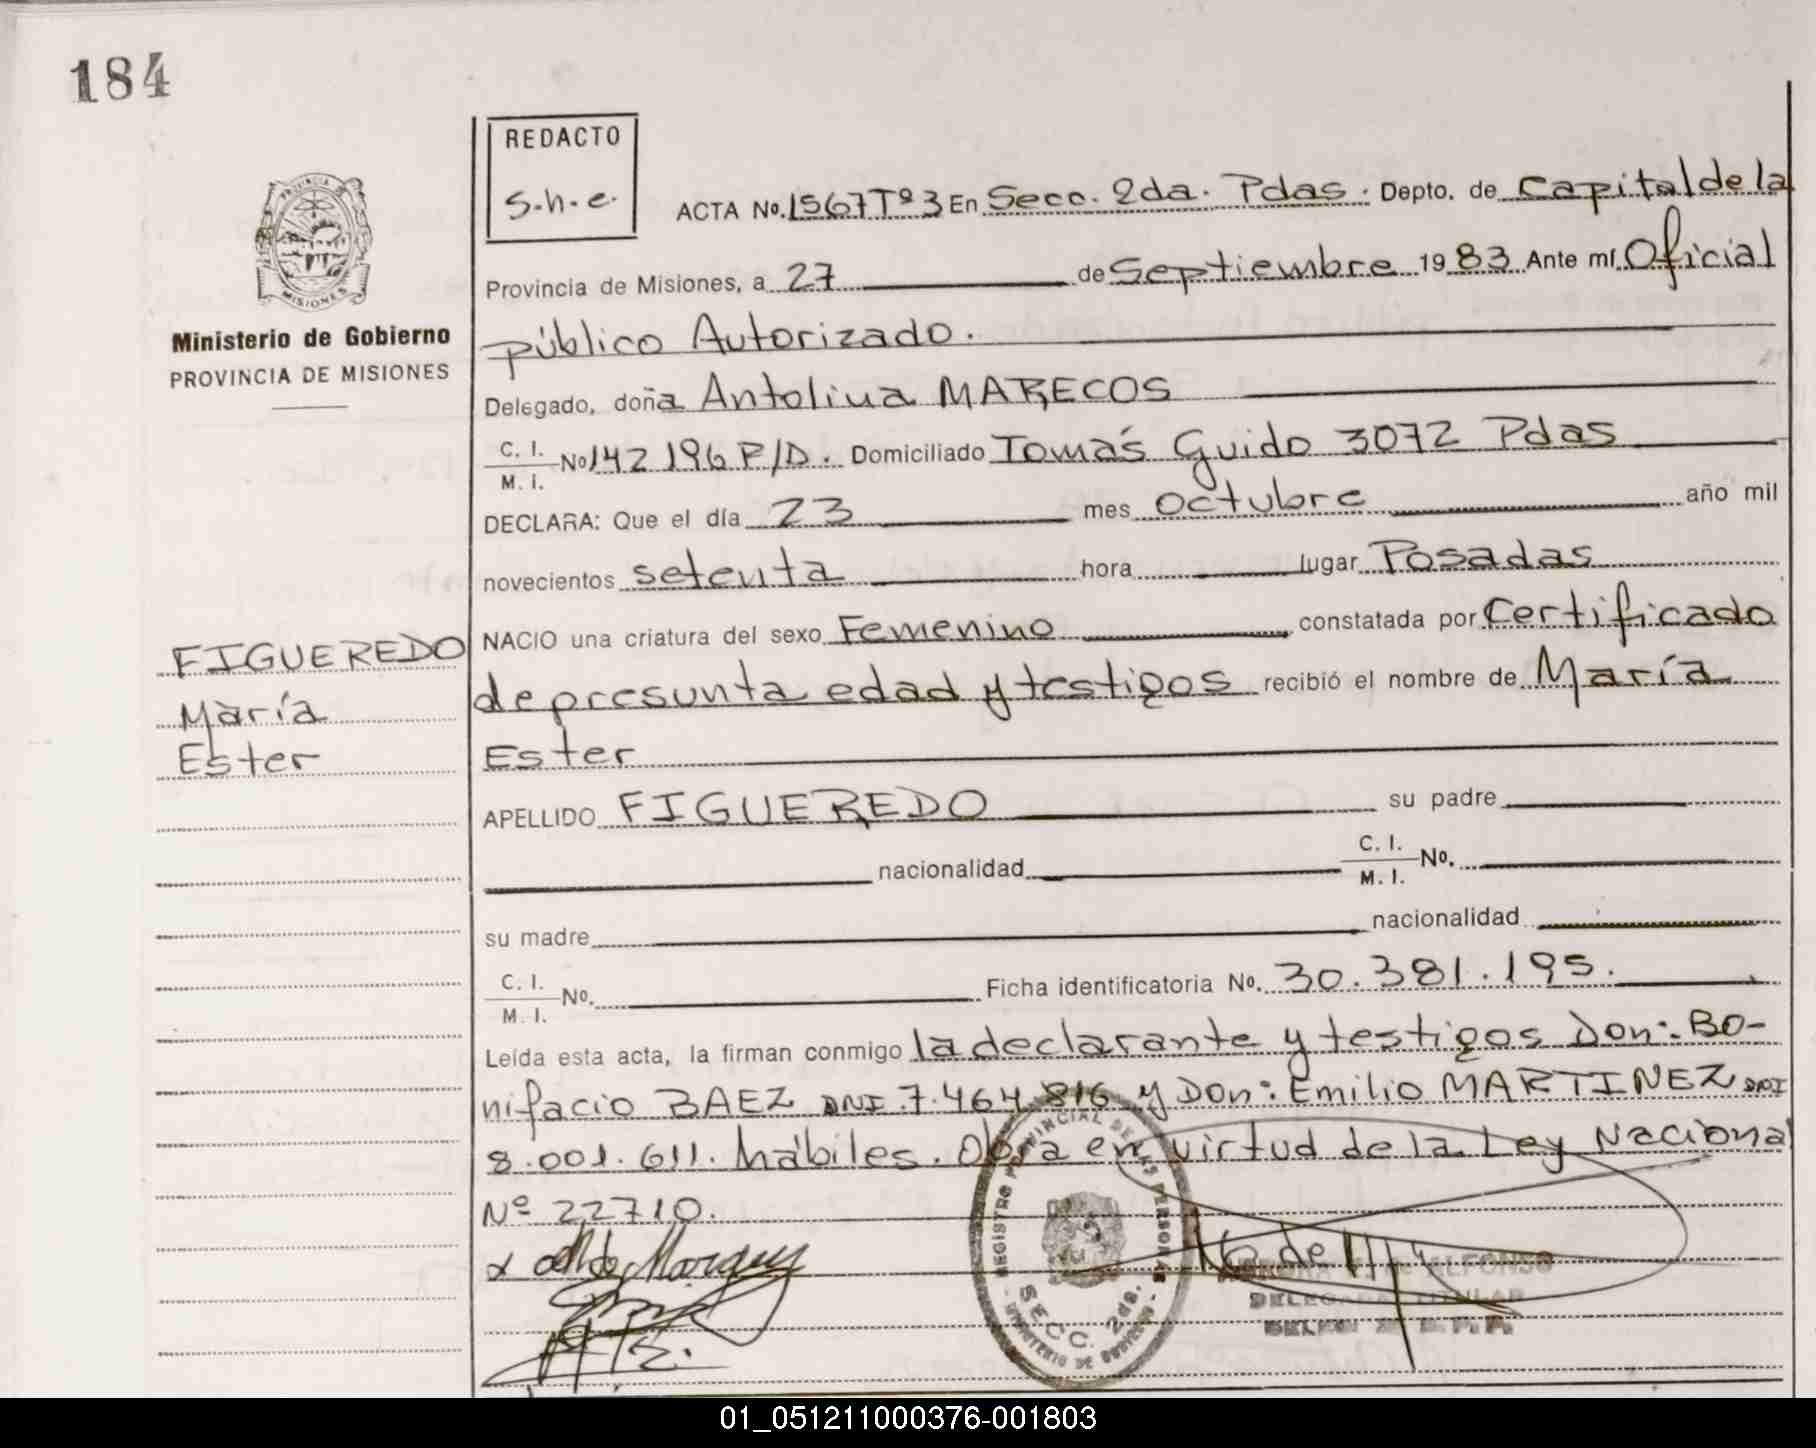 184
REDACTO
S.h.e.
ACTA No. 1567 Tº 3 En Secc. 2da. Pdas. Depto. de Capital de la
Provincia de Misiones, a 27 de Septiembre 1983 Ante mí Oficial
público Autorizado.
Delegado, doña Antolina MARECOS
C. I.
M. I. No 142196 P/D. Domiciliado Tomás Guido 3072 Pdas
DECLARA: Que el día 23 mes octubre año mil
novecientos setenta hora lugar Posadas
NACIO una criatura del sexo Femenino constatada por Certificado
de presunta edad y testigos recibió el nombre de María
Ester
APELLIDO FIGUEREDO su padre
nacionalidad C. I.
M. I. No.
su madre nacionalidad
C. I.
M. I. No. Ficha identificatoria No. 30.381.195.
Leída esta acta, la firman conmigo la declarante y testigos Don: Bo-
nifacio BAEZ DNI 7.464.816 y Don: Emilio MARTINEZ DNI
8.001.611. hábiles. Obra en virtud de la Ley Naciona
Nº 22710.
PROVINCIA DE
MISIONES
Ministerio de Gobierno
PROVINCIA DE MISIONES
FIGUEREDO
María
Ester
REGISTRO PROVINCIAL DE LAS PERSONAS
SECC. 2da.
MINISTERIO DE GOBIERNO
ALFONSO
DELEGADA TITULAR
01_051211000376-001803